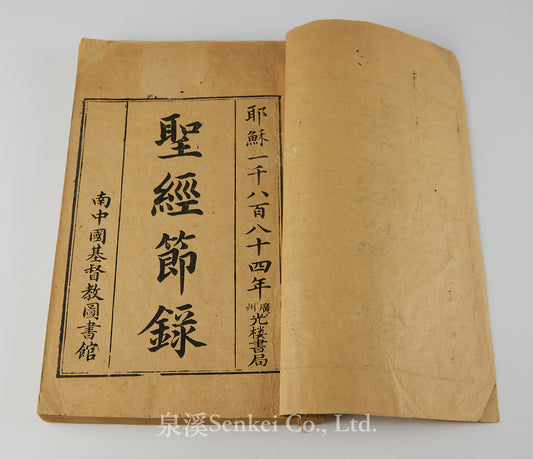 耶穌一千八百八十四年廣州光樓書局
聖經節錄
南中國基督教圖書館
泉溪Senkei Co., Ltd.